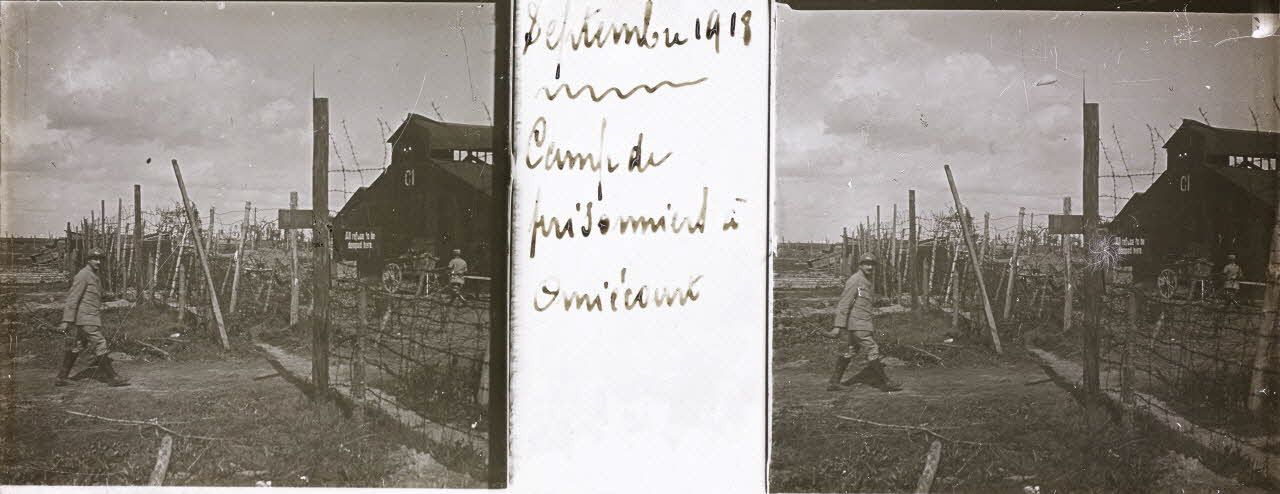 Septembre 1918
Camp de
prisonniers à
Omiécourt
C1
All refuse to be
dumped here.
C1
All refuse to be
dumped here.